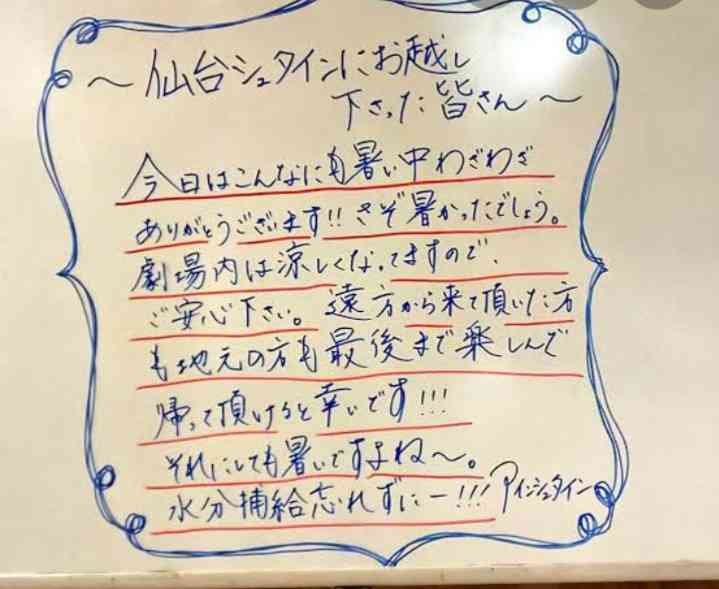 〜仙台シュタインにお越し
下さった皆さん〜
今日はこんなにも暑い中わざわざ
ありがとうございます!!さぞ暑かったでしょう。
劇場内は涼しくなってますので、
ご安心下さい。遠方から来て頂いた方
も地元の方も最後まで楽しんで
帰って頂けると幸いです!!!
それにしても暑いですよね〜。
水分補給忘れずにー!!!アインシュタイン